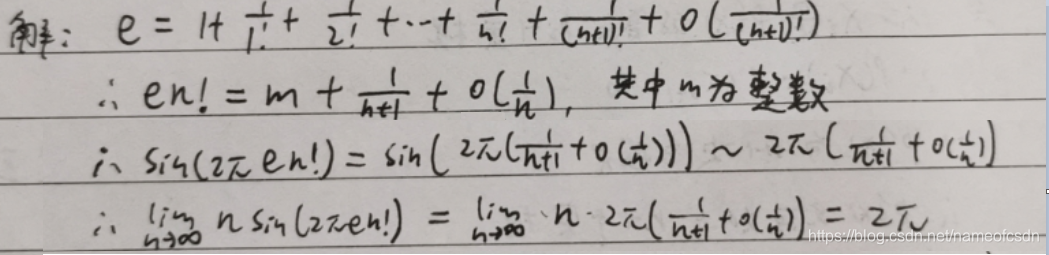 解: e = 1 + 1/1! + 1/2! + ... + 1/n! + 1/(n+1)! + o(1/(n+1)!)
∴ en! = m + 1/(n+1) + o(1/n), 其中m为整数
∴ sin(2πen!) = sin(2π(1/(n+1) + o(1/n))) ~ 2π(1/(n+1) + o(1/n))
∴ lim n→∞ n sin(2πen!) = lim n→∞ n·2π(1/(n+1) + o(1/n)) = 2π
https://blog.csdn.net/nameofcsdn